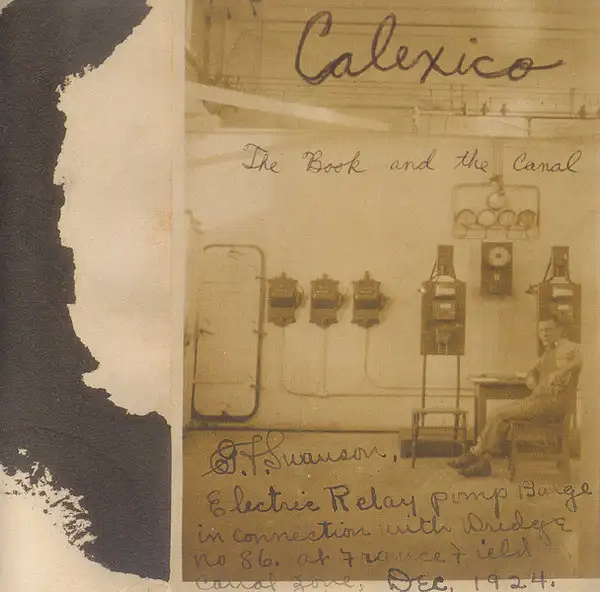 Calexico
The Book and the Canal
G.F. Swanson.
Electric Relay pump Barge
in connection with Dredge
no 86. at France Field
Canal Zone, Dec. 1924.